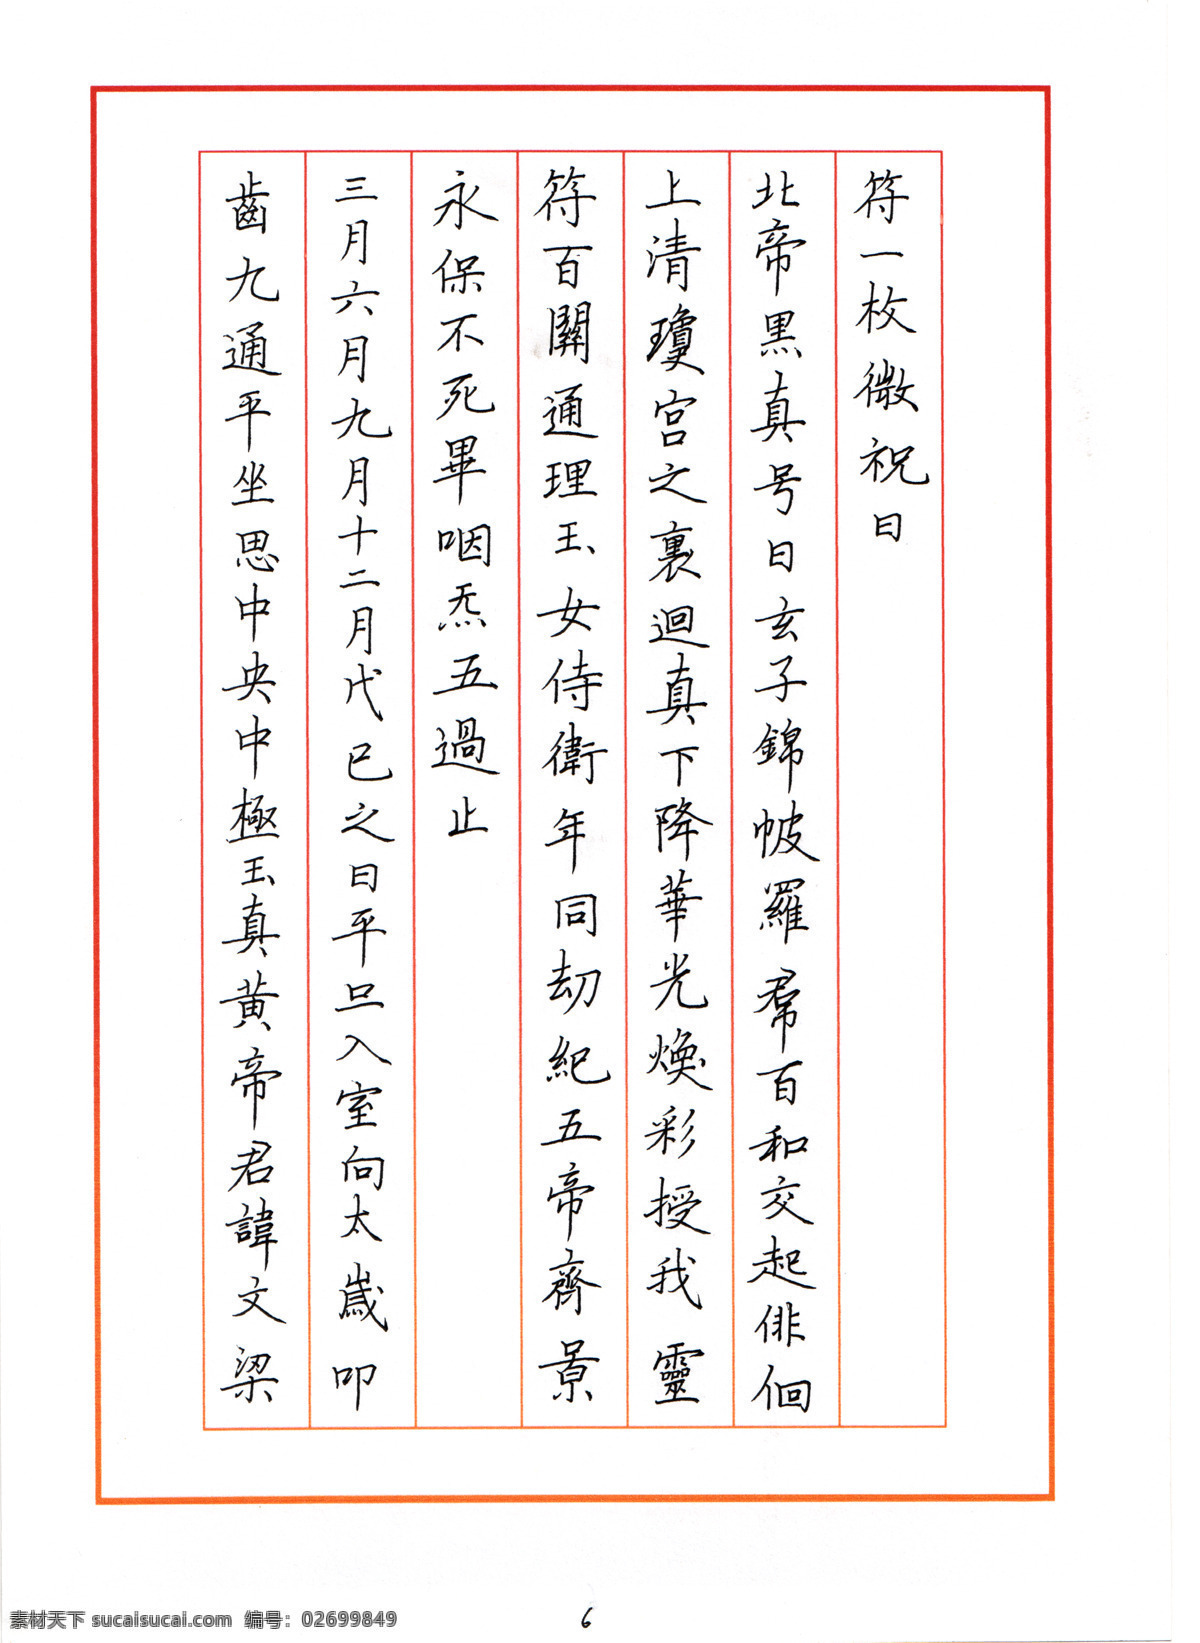 符一枚微祝曰
北帝黑真号曰玄子錦帔羅帬百和交起俳佪
上清瓊宮之裏迴真下降華光煥彩授我靈
符百關通理玉女侍衛年同劫紀五帝齊景
永保不死畢咽炁五過止
三月六月九月十二月戊己之日平旦入室向太歲叩
齒九通平坐思中央中極玉真黃帝君諱文梁
6
素材天下 sucaisucai.com 编号：02699849